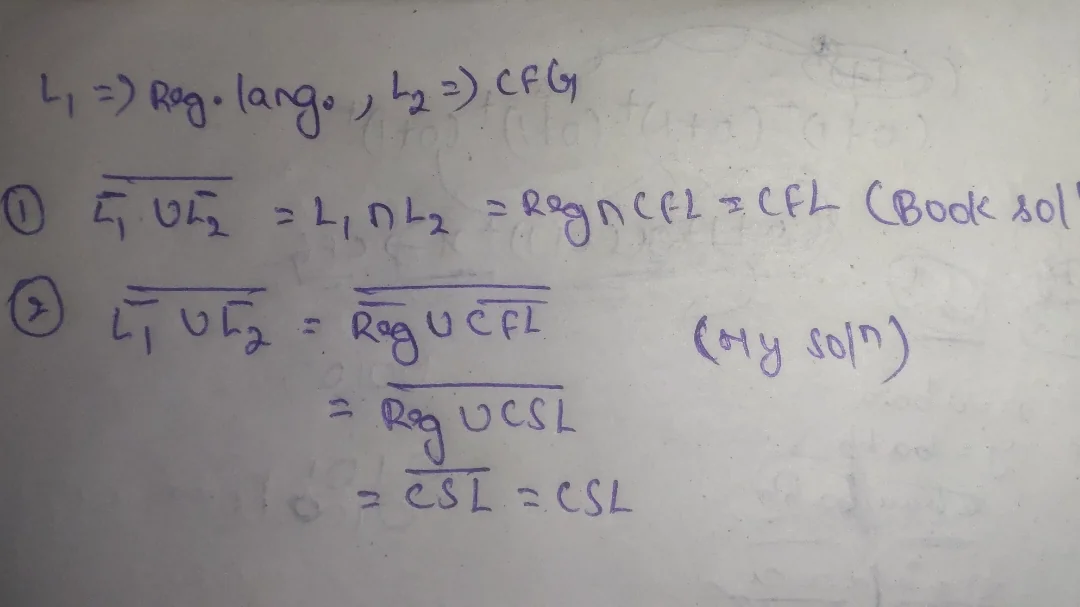 L₁ => Reg. lang., L₂ => CFG
① \overline{L̄₁ ∪ L̄₂} = L₁ ∩ L₂ = Reg ∩ CFL = CFL (Book sol
② \overline{L̄₁ ∪ L̄₂} = \overline{\overline{Reg} ∪ \overline{CFL}} (My solⁿ)
= \overline{Reg ∪ CSL}
= \overline{CSL} = CSL